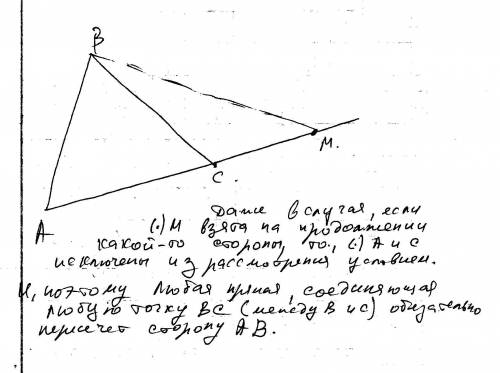 B
M.
C.
A
Даже в случая, если
(·) M взята на продолжении
какой-то стороны, то, (·) A и C
исключены из рассмотрения условием.
И, поэтому любая прямая, соединяющая
любую точку BC (между B и C) обязательно
пересечет сторону AB.